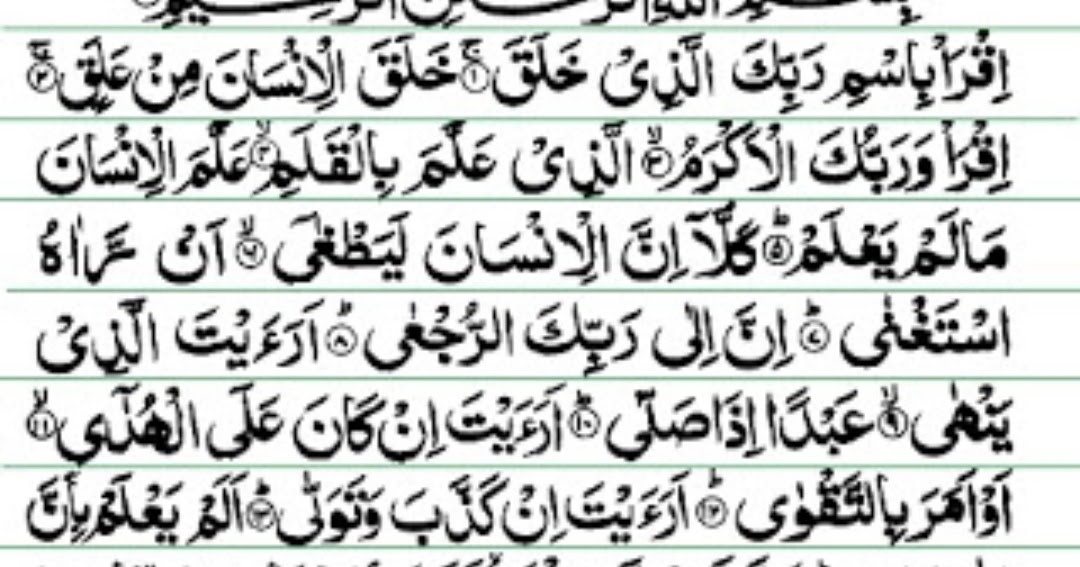 اِقْرَاْ بِاسْمِ رَبِّكَ الَّذِىْ خَلَقَ ۚ‏﴿۱﴾ خَلَقَ الْاِنْسَانَ مِنْ عَلَقٍ‌ۚ‏﴿۲﴾
اِقْرَاْ وَرَبُّكَ الْاَكْرَمُۙ‏﴿۳﴾ الَّذِىْ عَلَّمَ بِالْقَلَمِۙ‏﴿۴﴾ عَلَّمَ الْاِنْسَانَ
مَا لَمْ يَعْلَمْؕ‏﴿۵﴾ كَلَّاۤ اِنَّ الْاِنْسَانَ لَيَطْغٰٓىۙ‏﴿۶﴾ اَنْ رَّاٰهُ
اسْتَغْنٰىؕ‏﴿۷﴾ اِنَّ اِلٰى رَبِّكَ الرُّجْعٰىؕ‏﴿۸﴾ اَرَءَيْتَ الَّذِىْ
يَنْهٰىۙ‏﴿۹﴾ عَبْدًا اِذَا صَلّٰىؕ‏﴿۱۰﴾ اَرَءَيْتَ اِنْ كَانَ عَلَى الْهُدٰٓىۙ‏﴿۱۱﴾
اَوْ اَمَرَ بِالتَّقْوٰىؕ‏﴿۱۲﴾ اَرَءَيْتَ اِنْ كَذَّبَ وَتَوَلّٰىؕ‏﴿۱۳﴾ اَلَمْ يَعْلَمْ بِاَنَّ